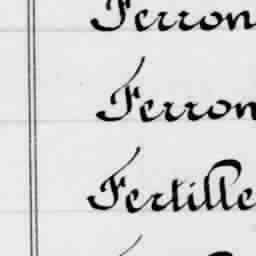 Ferron
Ferron
Fertille